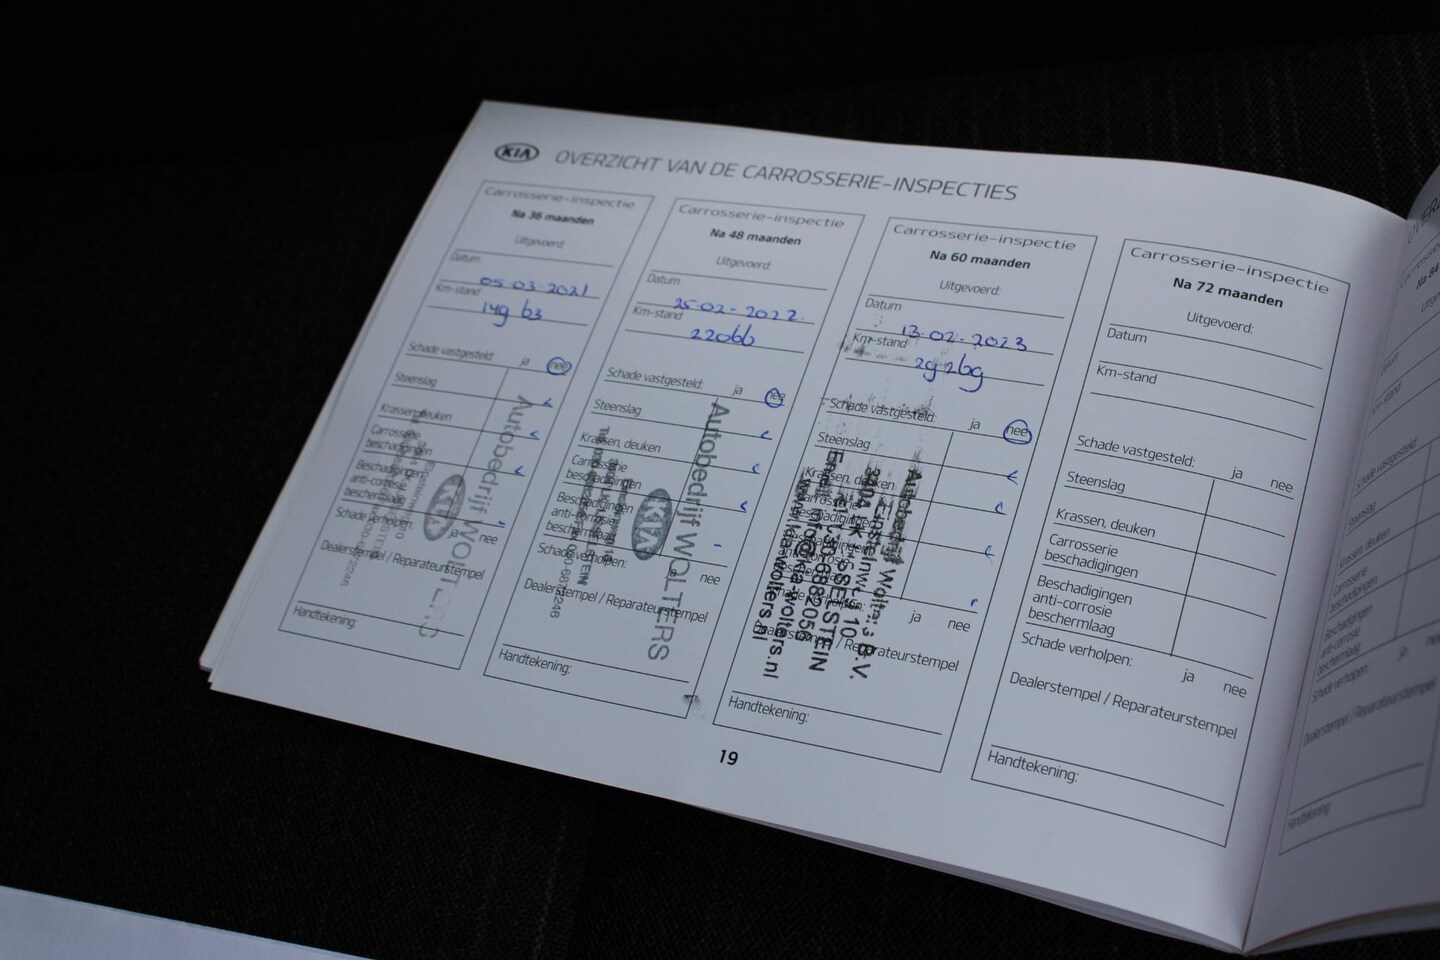 KIA OVERZICHT VAN DE CARROSSERIE-INSPECTIES
Carrosserie-inspectie
Na 36 maanden
Uitgevoerd:
Datum
05-03-2021
Km-stand
14963
Schade vastgesteld: ja nee
Steenslag
Krassen, deuken
Carrosserie
beschadigingen
Beschadigingen
anti-corrosie
beschermlaag
Schade verholpen:
ja nee
Dealerstempel / Reparateurstempel
Autobedrijf WOLTERS
KIA
Handtekening:
Carrosserie-inspectie
Na 48 maanden
Uitgevoerd:
Datum
25-02-2022
Km-stand
22066
Schade vastgesteld: ja nee
Steenslag
Krassen, deuken
Carrosserie
beschadigingen
Beschadigingen
anti-corrosie
beschermlaag
Schade verholpen:
nee
Dealerstempel / Reparateurstempel
Autobedrijf WOLTERS
KIA
Handtekening:
Carrosserie-inspectie
Na 60 maanden
Uitgevoerd:
Datum
13-02-2023
Km-stand
29269
Schade vastgesteld: ja nee
Steenslag
Krassen, deuken
ja nee
Reparateurstempel
Autobedrijf
B.V.
IJSSELSTEIN
Handtekening:
Carrosserie-inspectie
Na 72 maanden
Uitgevoerd:
Datum
Km-stand
Schade vastgesteld: ja nee
Steenslag
Krassen, deuken
Carrosserie
beschadigingen
Beschadigingen
anti-corrosie
beschermlaag
Schade verholpen:
ja nee
Dealerstempel / Reparateurstempel
Handtekening:
19
Na 84
Datum
Km-stand
Schade vastgesteld:
Steenslag
Krassen, deuken
Carrosserie
beschadigingen
Beschadigingen
anti-corrosie
beschermlaag
Schade verholpen:
Dealerstempel / Reparateurstempel
Handtekening: